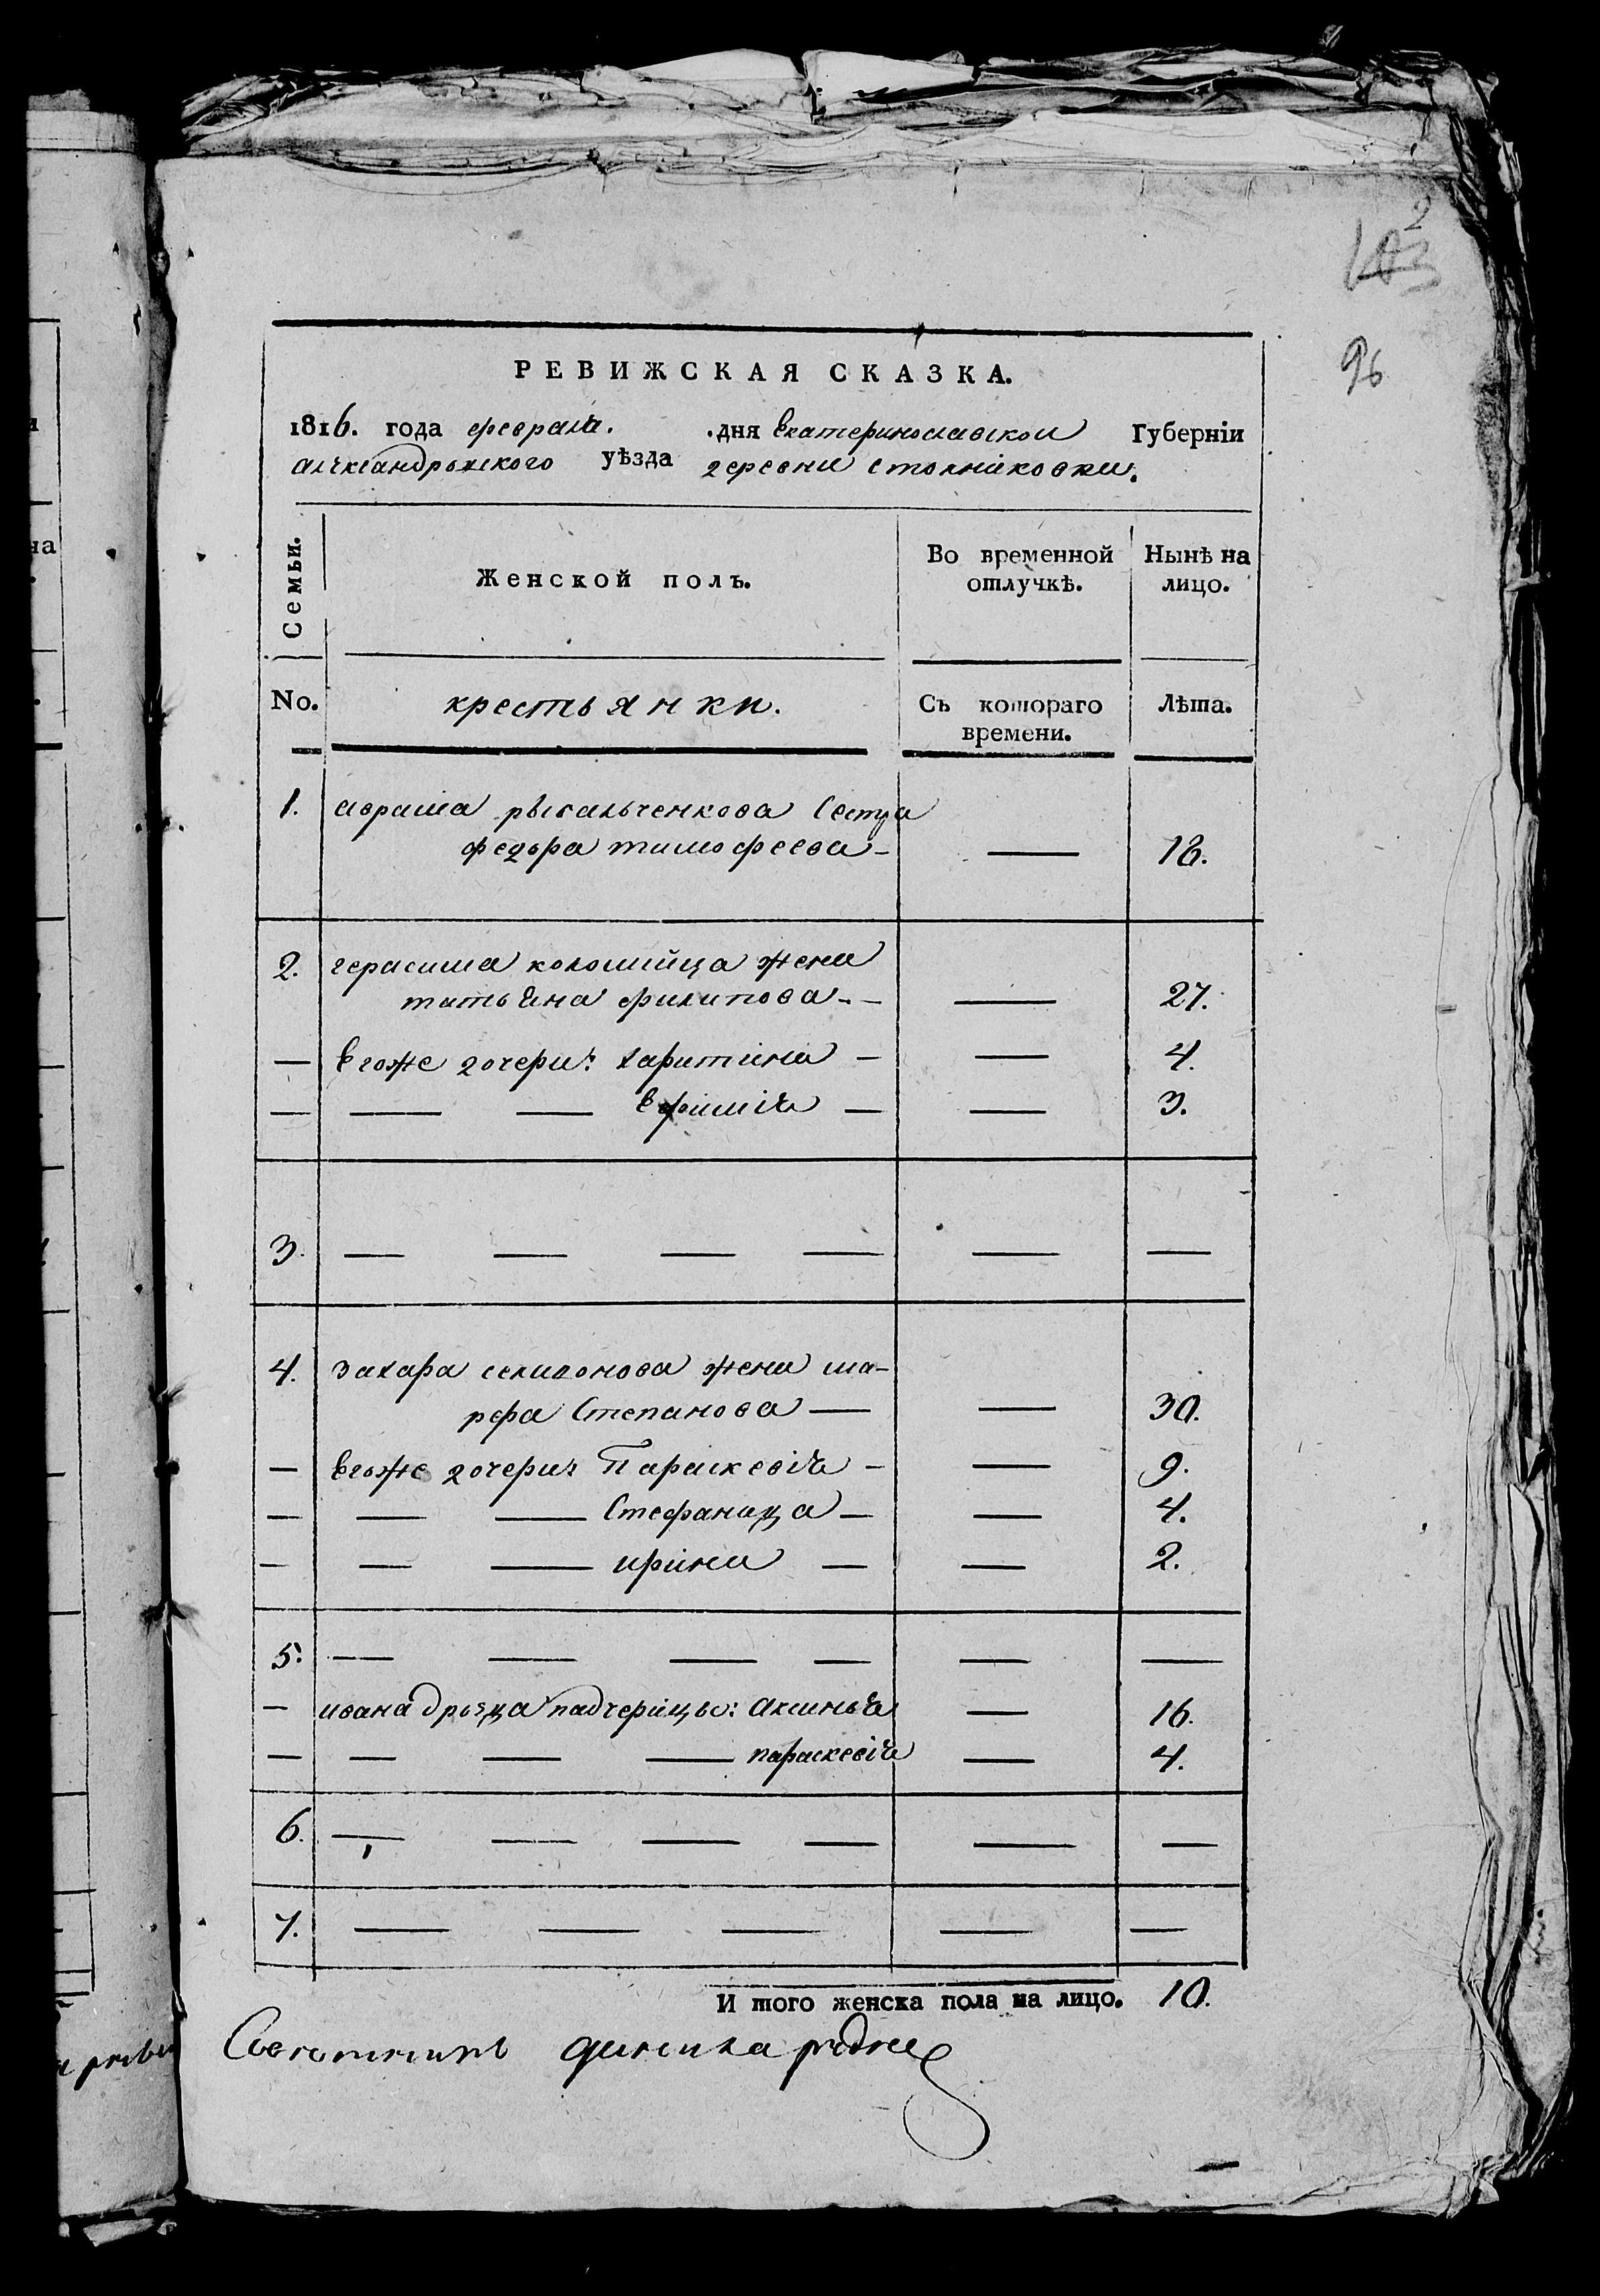 2
103
96
РЕВИЖСКАЯ СКАЗКА.
1816. года февраля. .дня Екатеринославской Губерніи
александровского уѣзда деревни столниковки.
Семьи.
Женской полъ.
Во временной отлучкѣ.
Нынѣ на лицо.
No.
крестьянки.
Съ котораго времени.
Лѣта.
1. аврама рыбальченкова Сестра
федора тимофеева — — 18.
2. герасима коломийца жена
татьяна филипова - - — 27.
— Егоже дочери: харитина — — 4.
— — — Ефимия — — 3.
3. — — — — — —
4. захара селионова жена ма-
рфа Степанова — — 30.
— Егоже дочери Параскевія — — 9.
— — — Стефанида — — 4.
— — — ирина — — 2.
5. — — — — — —
— ивана дрозда падчерицы: Аксинья — 16.
— — — — параскевія — 4.
6. — — — — — —
7. — — — — —
И того женска пола на лицо. 10.